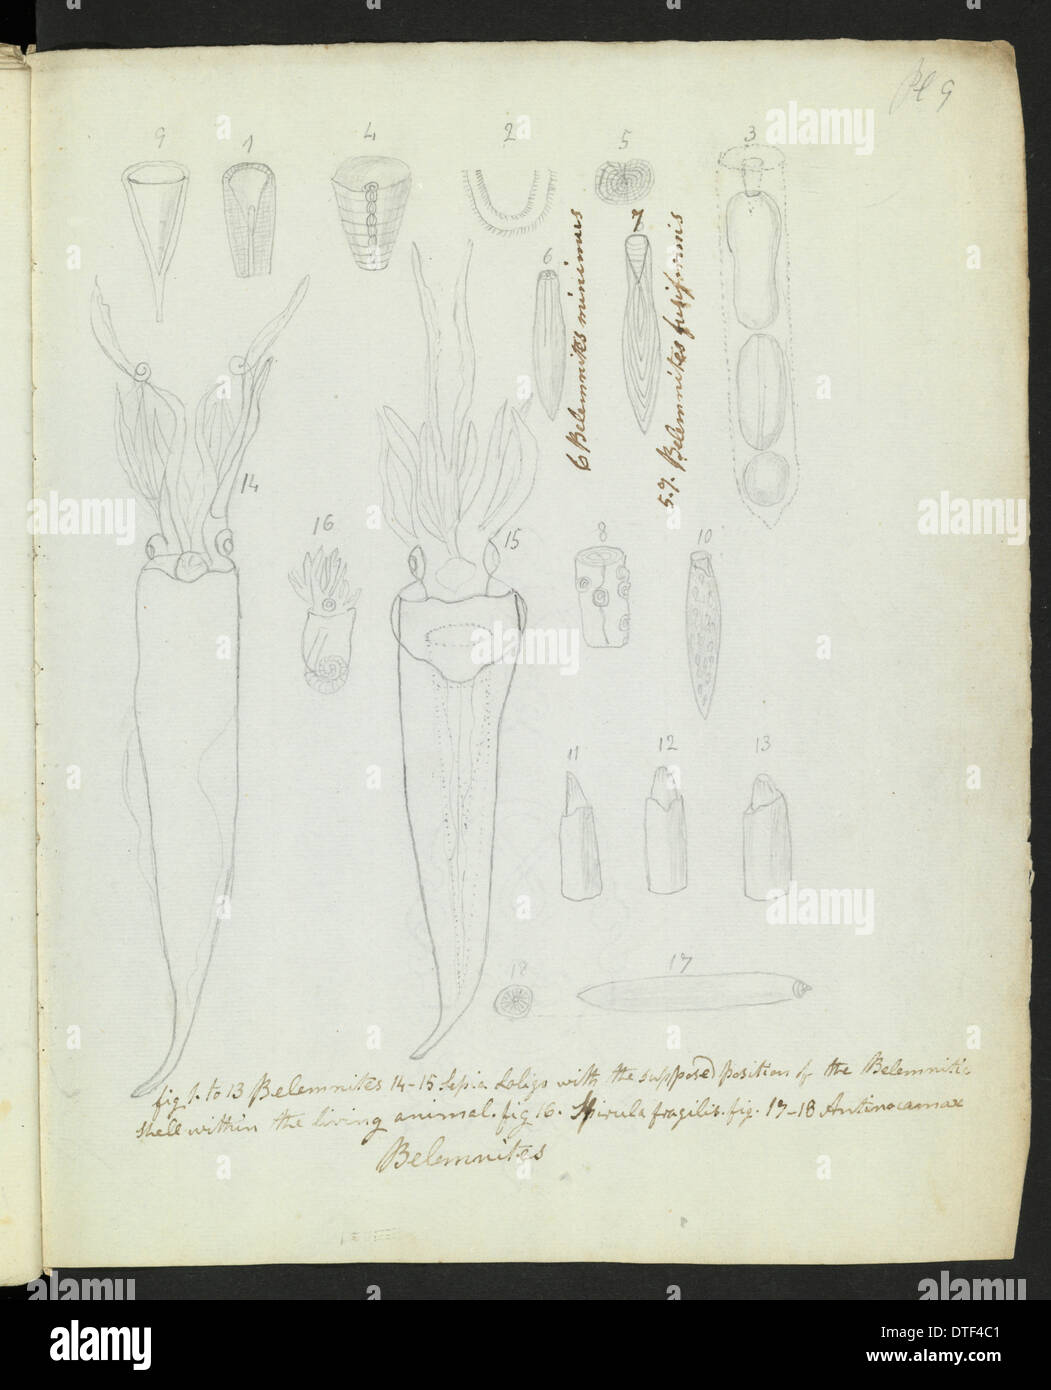 Pl 9
9 1 4 2 5 3
6 Belemnites minimus
5.7. Belemnites fusiformis
6 7
14
16 15 8 10
11 12 13
18 17
fig 1. to 13 Belemnites 14-15 Sepia Loligo with the supposed position of the Belemnitic
shell within the living animal. fig 16. Spirula fragilis. fig. 17-18 Actinocamax
Belemnites
alamy
DTF4C1
www.alamy.com